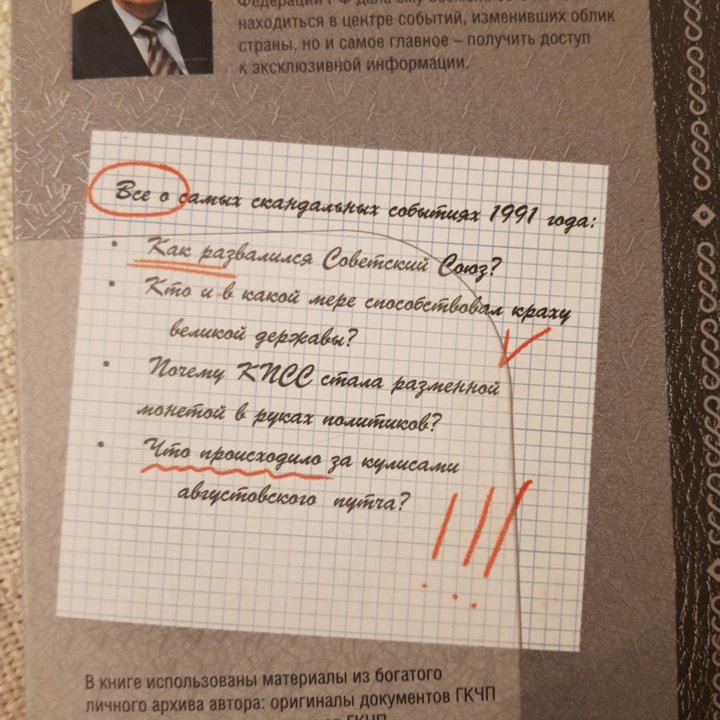 Федерации РФ дала ему возможность не
находиться в центре событий, изменивших облик
страны, но и самое главное – получить доступ
к эксклюзивной информации.
Все о самых скандальных событиях 1991 года:
• Как развалился Советский Союз?
• Кто и в какой мере способствовал краху
великой державы?
• Почему КПСС стала разменной
монетой в руках политиков?
• Что происходило за кулисами
августовского путча?
!!!
В книге использованы материалы из богатого
личного архива автора: оригиналы документов ГКЧП
ГКЧП